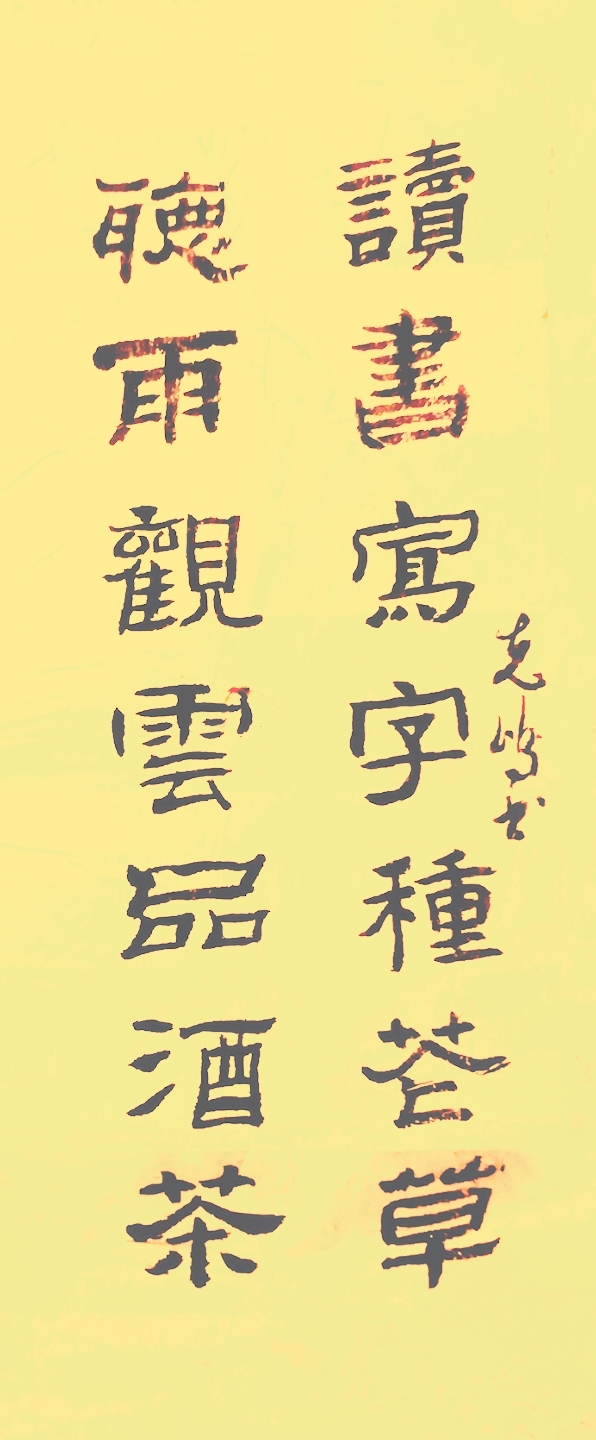 讀書寫字種花草
聽雨觀雲品酒茶
克鳴书